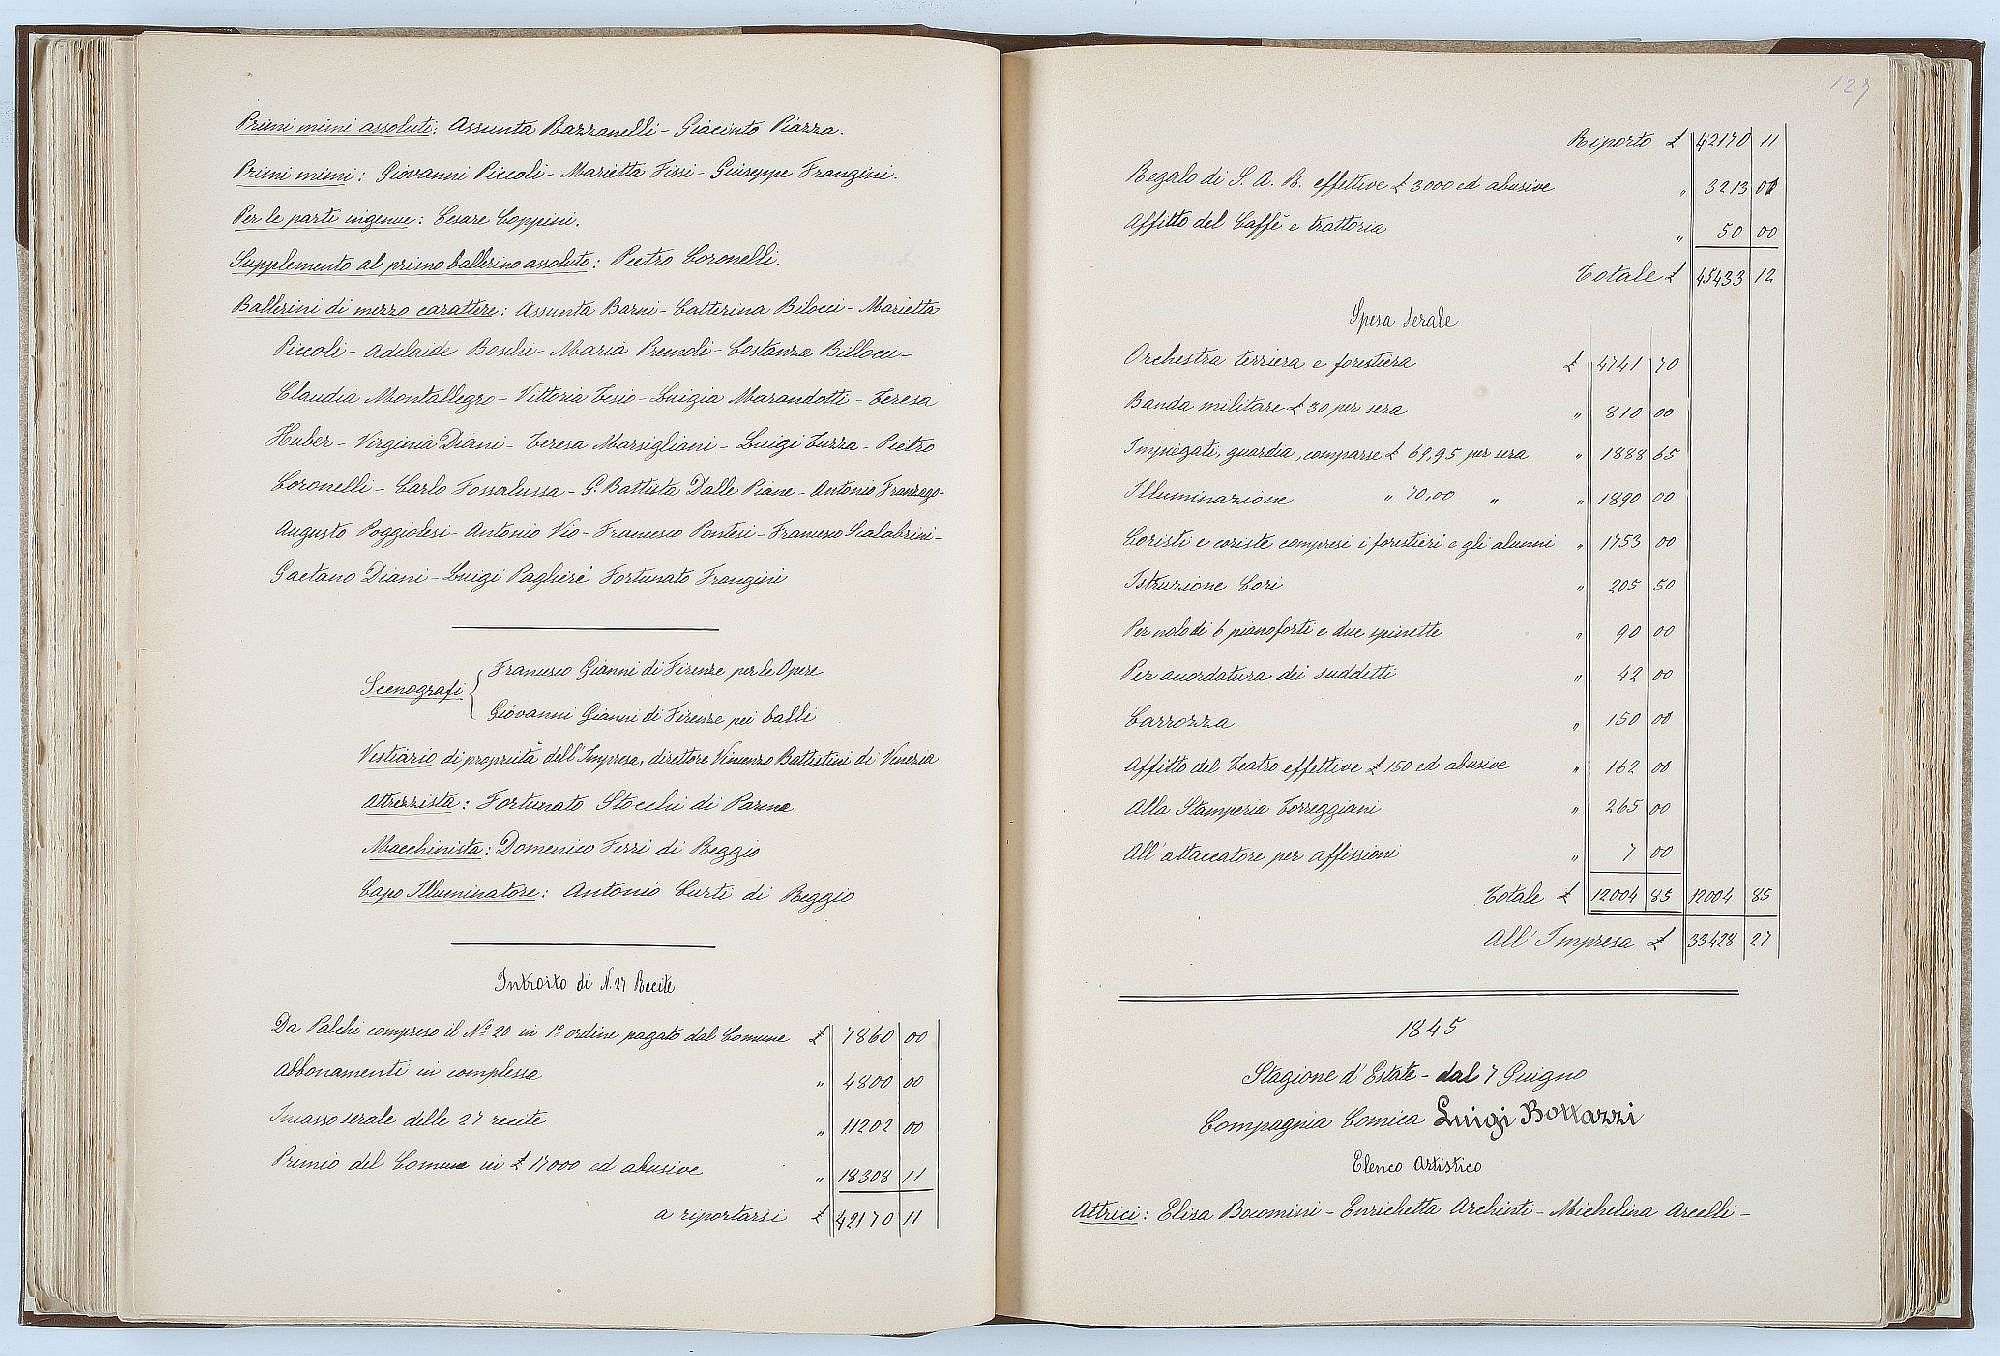 Primi mimi assoluti: Assunta Razzanelli - Giacinto Piazza.
Primi mimi: Giovanni Piccoli - Marietta Fissi - Giuseppe Franzini.
Per le parti ingenue: Cesare Coppini.
Supplemento al primo ballerino assoluto: Pietro Coronelli.
Ballerini di mezzo carattere: Assunta Barni - Catterina Bilocci - Marietta
Piccoli - Adelaide Boschi - Maria Premoli - Costanza Billocci -
Claudia Montallegro - Vittoria Tesio - Luigia Marandotti - Teresa
Huber - Virginia Diani - Teresa Marsigliani - Luigi Zuzza - Pietro
Coronelli - Carlo Fossalussa - G. Battista Dalle Piane - Antonio Franzago -
Augusto Poggiolesi - Antonio Vio - Francesco Pontesi - Francesco Scalabrini -
Gaetano Diani - Luigi Paglieri e Fortunato Franzini
Scenografi { Francesco Gianni di Firenze per le Opere
Giovanni Gianni di Firenze pei balli
Vestiario di proprietà dell'Impresa, direttore Vincenzo Battistini di Venezia
Attrezzista: Fortunato Stocchi di Parma
Macchinista: Domenico Ferri di Reggio
Capo Illuminatore: Antonio Curti di Reggio
Introito di N. 27 Recite
Da Palchi compreso il N° 20 in 1° ordine pagato dal Comune £ 7860 00
Abbonamenti in complesso " 4800 00
Incasso serale delle 27 recite " 11202 00
Premio del Comune in £ 17000 ed abusive " 18308 11
a riportarsi £ 42170 11
127
Riporto £ 42170 11
Regalo di S. A. R. effettive £ 3000 ed abusive " 3213 01
Affitto del Caffè e trattoria " 50 00
Totale £ 45433 12
Spesa serale
Orchestra terriera e forestiera £ 4741 70
Banda militare £ 30 per sera " 810 00
Impiegati, guardia, comparse £ 69,95 per sera " 1888 65
Illuminazione " 70,00 " " 1890 00
Coristi e coriste compresi i forestieri e gli alunni " 1753 00
Istruzione Cori " 205 50
Per nolo di 6 pianoforti e due spinette " 90 00
Per accordatura dei suddetti " 42 00
Carrozza " 150 00
Affitto del Teatro effettive £ 150 ed abusive " 162 00
Alla Stamperia Torreggiani " 265 00
All'attaccatore per affissioni " 7 00
Totale £ 12004 85 12004 85
All'Impresa £ 33428 27
1845
Stagione d'Estate - dal 7 Guigno
Compagnia Comica Luigi Bottazzi
Elenco Artistico
Attrici: Elisa Bocomini - Enrichetta Archinti - Michelina Arcelli -